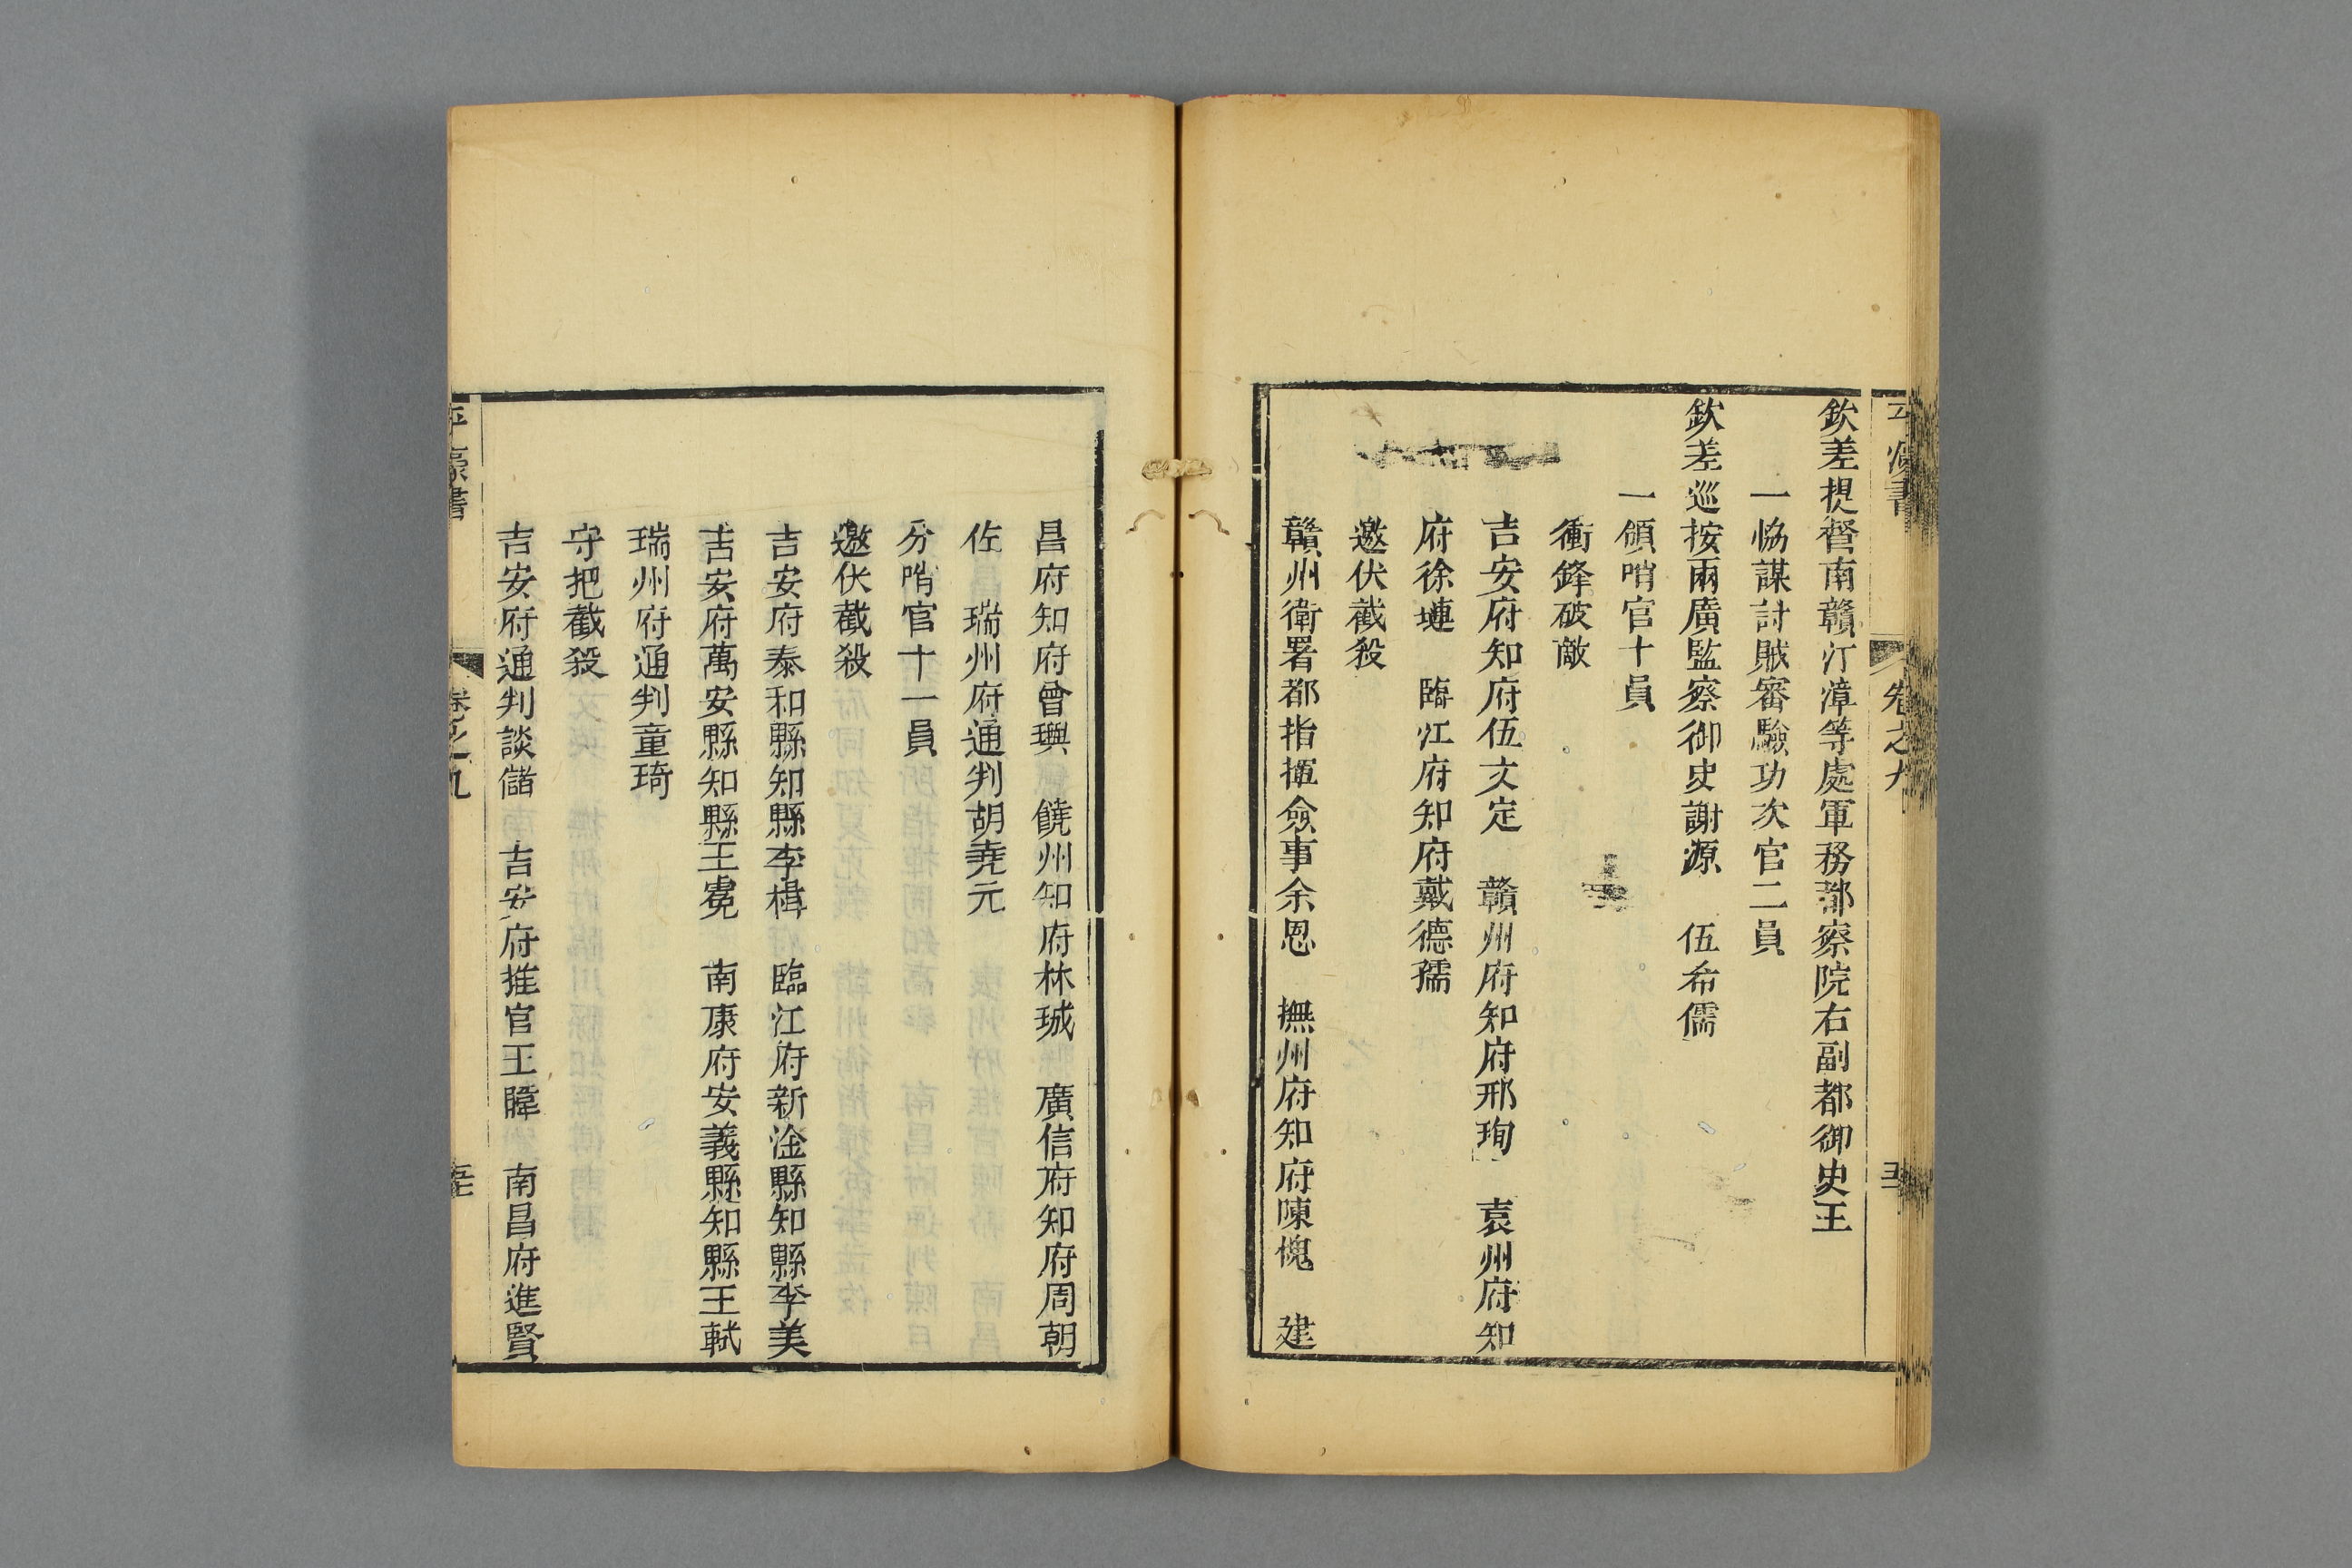 欽差提督南贛汀漳等處軍務都察院右副都御史王
一恊謀討賊審驗功次官二員
欽差巡按兩廣監察御史謝源　伍希儒
一領哨官十員
衝鋒破敵
吉安府知府伍文定　贛州府知府邢珣　袁州府知
府徐璉　臨江府知府戴德孺
邀伏截殺
贛州衛署都指揮僉事余恩　撫州府知府陳槐　建
昌府知府曾璵　饒州知府林珹　廣信府知府周朝
佐　瑞州府通判胡堯元
分哨官十一員
邀伏截殺
吉安府泰和縣知縣李楫　臨江府新淦縣知縣李美
吉安府萬安縣知縣王冕　南康府安義縣知縣王軾
瑞州府通判童琦
守把截殺
吉安府通判談儲　吉安府推官王暐　南昌府進賢
平濠書
卷之九